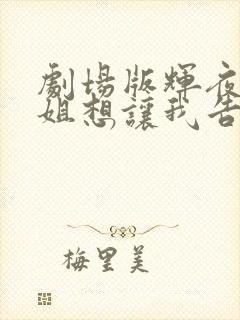 劇場版輝夜
姐想讓我告
梅里美